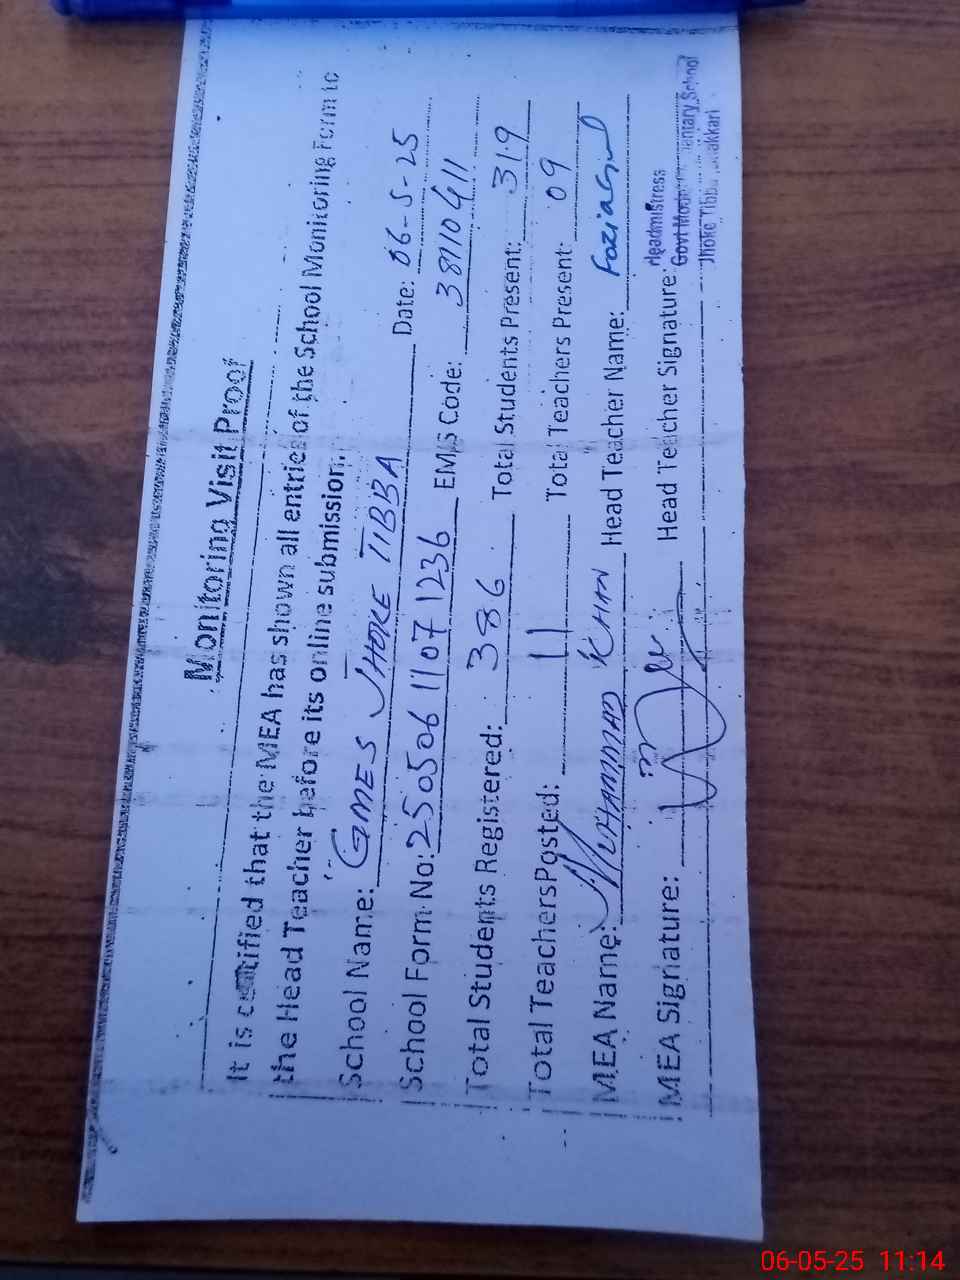 Monitoring Visit Proof
It is certified that the MEA has shown all entries of the School Monitoring Form to
the Head Teacher before its online submission.
School Name: GMES JHOKE TIBBA Date: 06-5-25
School Form No: 25050611071236 EMIS Code: 38110411
Total Students Registered: 386 Total Students Present: 319
Total Teachers Posted: 11 Total Teachers Present: 09
MEA Name: MUHAMMAD KHAN Head Teacher Name:
MEA Signature: Head Teacher Signature:
Headmistress
Govt Model School
Jhoke Tibba
06-05-25 11:14